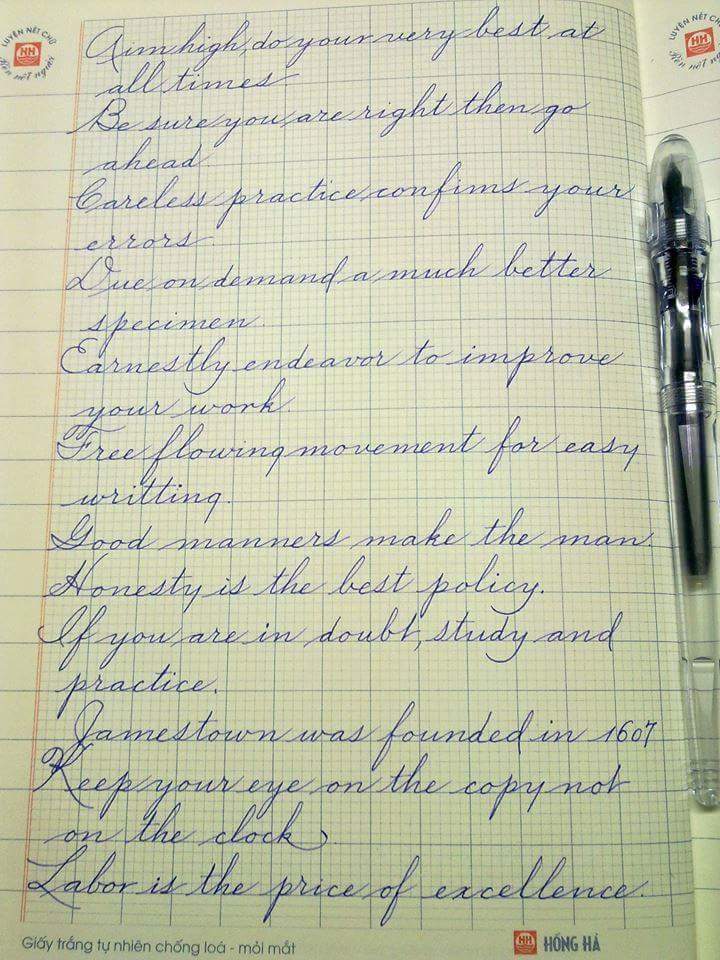 LUYỆN NÉT CHỮ
HH
Rèn nết người
Aim high, do your very best at
all times.
Be sure you are right then go
ahead
Careless practice confims your
errors.
Due on demand a much better
specimen.
Earnestly endeavor to improve
your work.
Free flowing movement for easy
writting.
Good manners make the man.
Honesty is the best policy.
If you are in doubt, study and
practice.
Jamestown was founded in 1607
Keep your eye on the copy not
on the clock.
Labor is the price of excellence.
Giấy trắng tự nhiên chống loá - mỏi mắt
HH HỒNG HÀ
LUYỆN NÉT CH
HH
Rèn nết ng